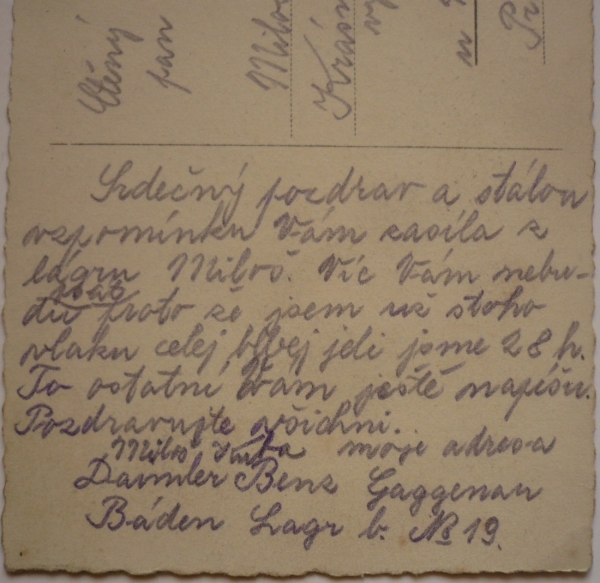 Ctěný
pan
Miloš
Krásn
vy
u
Pr
Srdečný pozdrav a stálou
vzpomínku Vám zasílá z
lágru Miloš. Víc Vám nebu-
psát
du proto že jsem už stoho
vlaku celej blbej jeli jsme 28 h.
To ostatní Vám ještě napíšu.
Pozdravujte všichni.
Miloš moje adresa
Daimler Benz Gaggenau
Báden Lagr b. № 19.